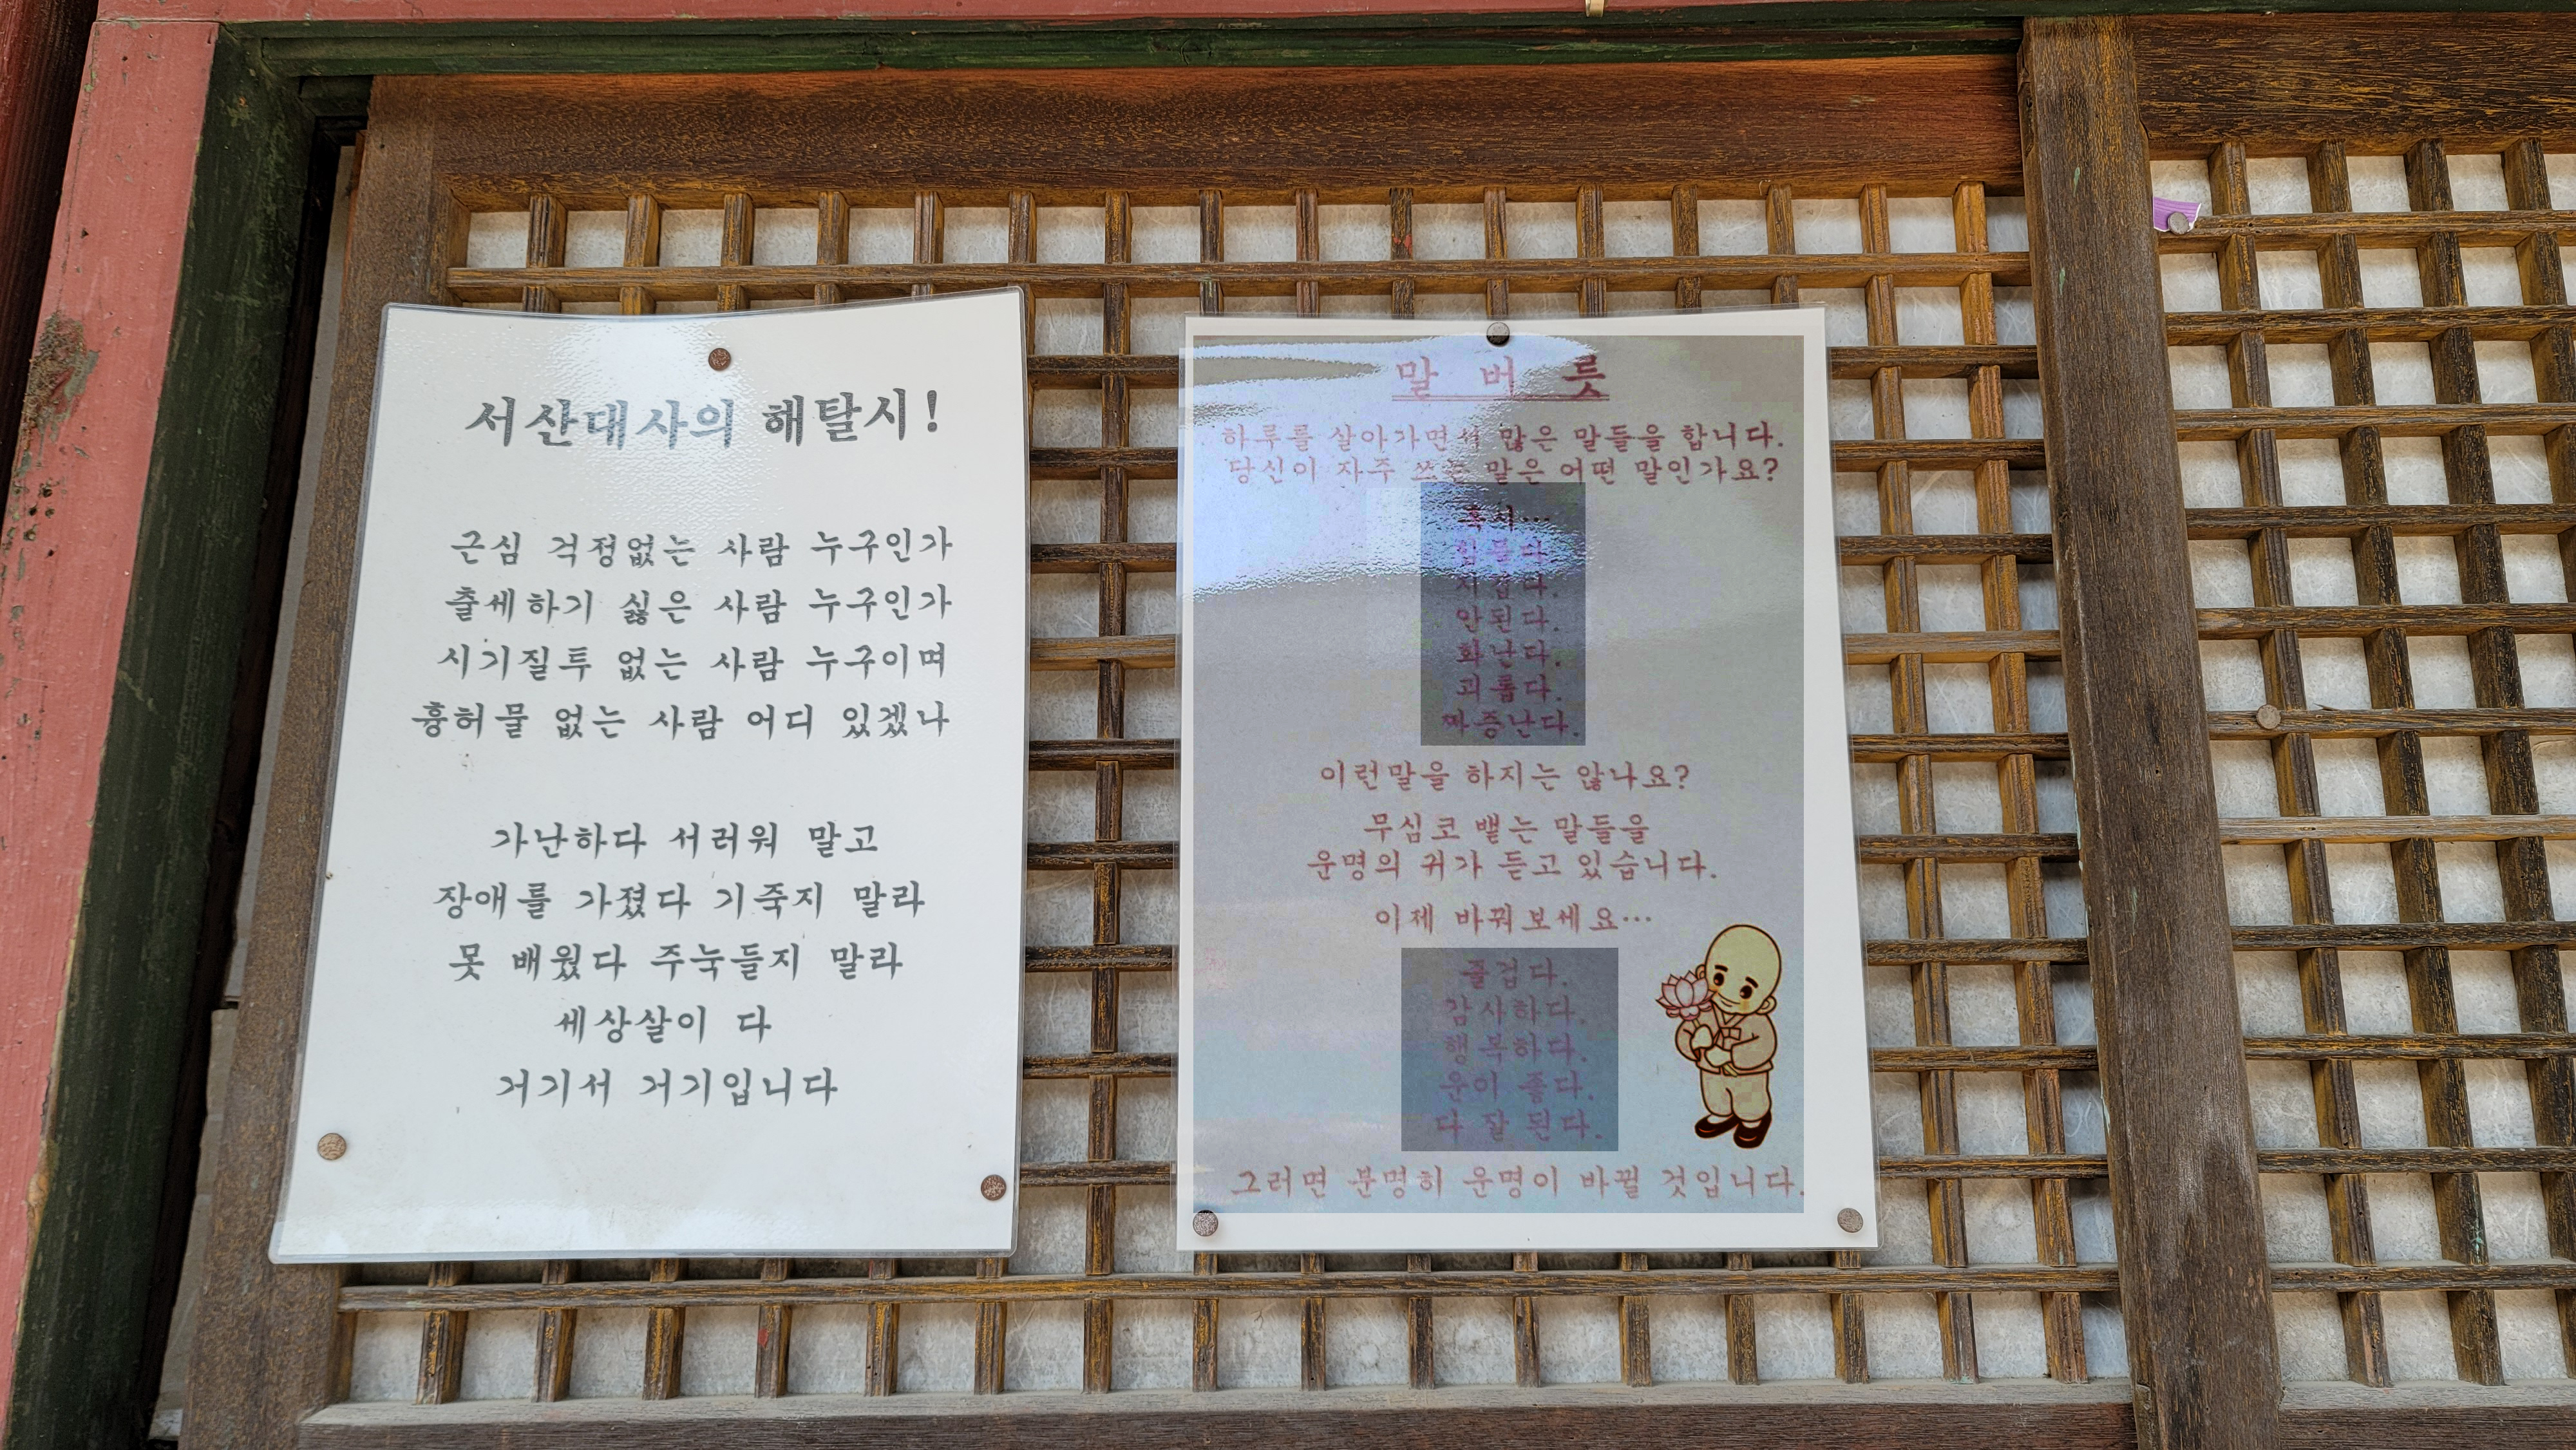 서산대사의 해탈시!
근심 걱정없는 사람 누구인가
출세하기 싫은 사람 누구인가
시기질투 없는 사람 누구이며
흉허물 없는 사람 어디 있겠나
가난하다 서러워 말고
장애를 가졌다 기죽지 말라
못 배웠다 주눅들지 말라
세상살이 다
거기서 거기입니다
말 버 릇
하루를 살아가면서 많은 말들을 합니다.
당신이 자주 쓰는 말은 어떤 말인가요?
혹시…
힘들다.
지겹다.
안된다.
화난다.
괴롭다.
짜증난다.
이런말을 하지는 않나요?
무심코 뱉는 말들을
운명의 귀가 듣고 있습니다.
이제 바꿔보세요…
즐겁다.
감사하다.
행복하다.
운이 좋다.
다 잘 된다.
그러면 분명히 운명이 바뀔 것입니다.